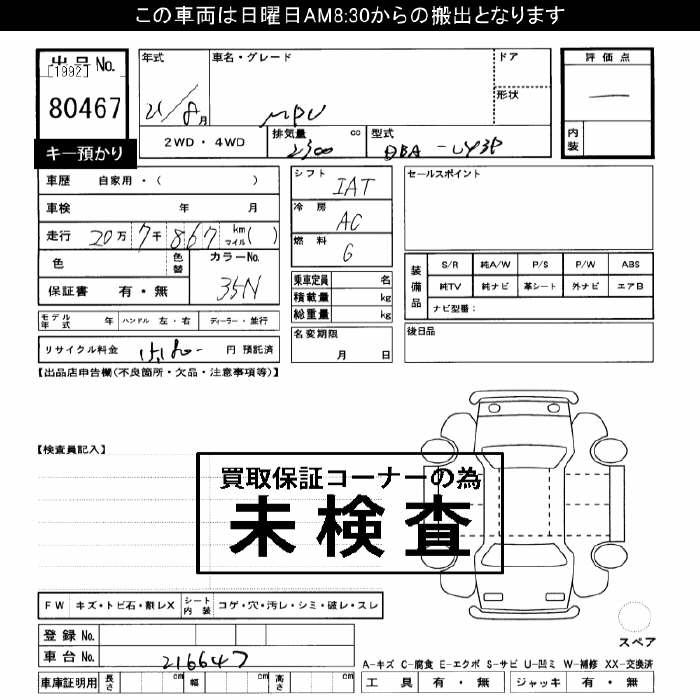 この車両は日曜日AM8:30からの搬出となります
出品 No.
[1992]
80467
キー預かり
年式
21/8月
車名・グレード
MPV
ドア
形状
2WD・4WD
排気量 cc
2300
型式
DBA-LY3P
評価点
一
内装
車歴 自家用・( )
車検 年 月
走行 20万 7千 867 km マイル( )
色
色替
カラーNo.
35N
保証書 有・無
シフト
IAT
冷房
AC
燃料
G
乗車定員 名
積載量 kg
総重量 kg
セールスポイント
装備品
S/R 純A/W P/S P/W ABS
純TV 純ナビ 革シート 外ナビ エアB
ナビ型番:
モデル年式 年 ハンドル 左・右 ディーラー・並行
名変期限
月 日
後日品
リサイクル料金 15,180- 円 預託済
【出品店申告欄(不良箇所・欠品・注意事項等)】
【検査員記入】
買取保証コーナーの為
未検査
FW キズ・トビ石・割レX シート内装 コゲ・穴・汚レ・シミ・破レ・スレ
登録 No.
車台 No. 216647
スペア
A-キズ C-腐食 E-エクボ S-サビ U-凹ミ W-補修 XX-交換済
車庫証明用 長さ cm 幅 cm 高さ cm
工具 有・無 ジャッキ 有・無